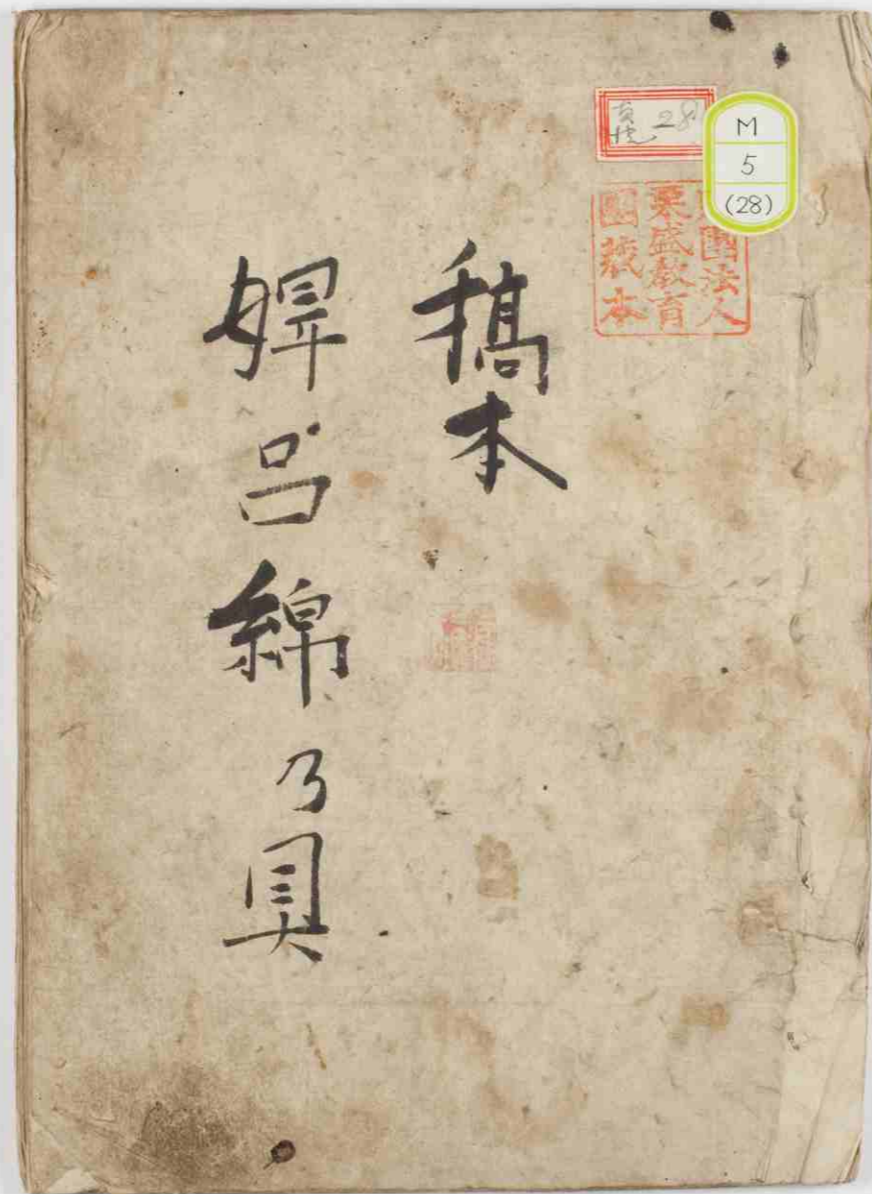 真澄 28
M
5
(28)
團法人
栗盛教育
團藏本
稿本
婢呂綿乃具